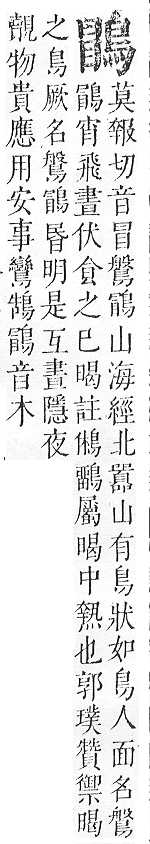 𪃑 莫報切音冒𪄀𪃑山海經北嚻山有鳥狀如烏人面名𪄀
𪃑宵飛晝伏食之巳暍註鵂鶹屬暍中熱也郭璞贊禦暍
之鳥厥名𪄀𪃑昏明是互晝隱夜
覿物貴應用安事鸞鵠𪃑音木